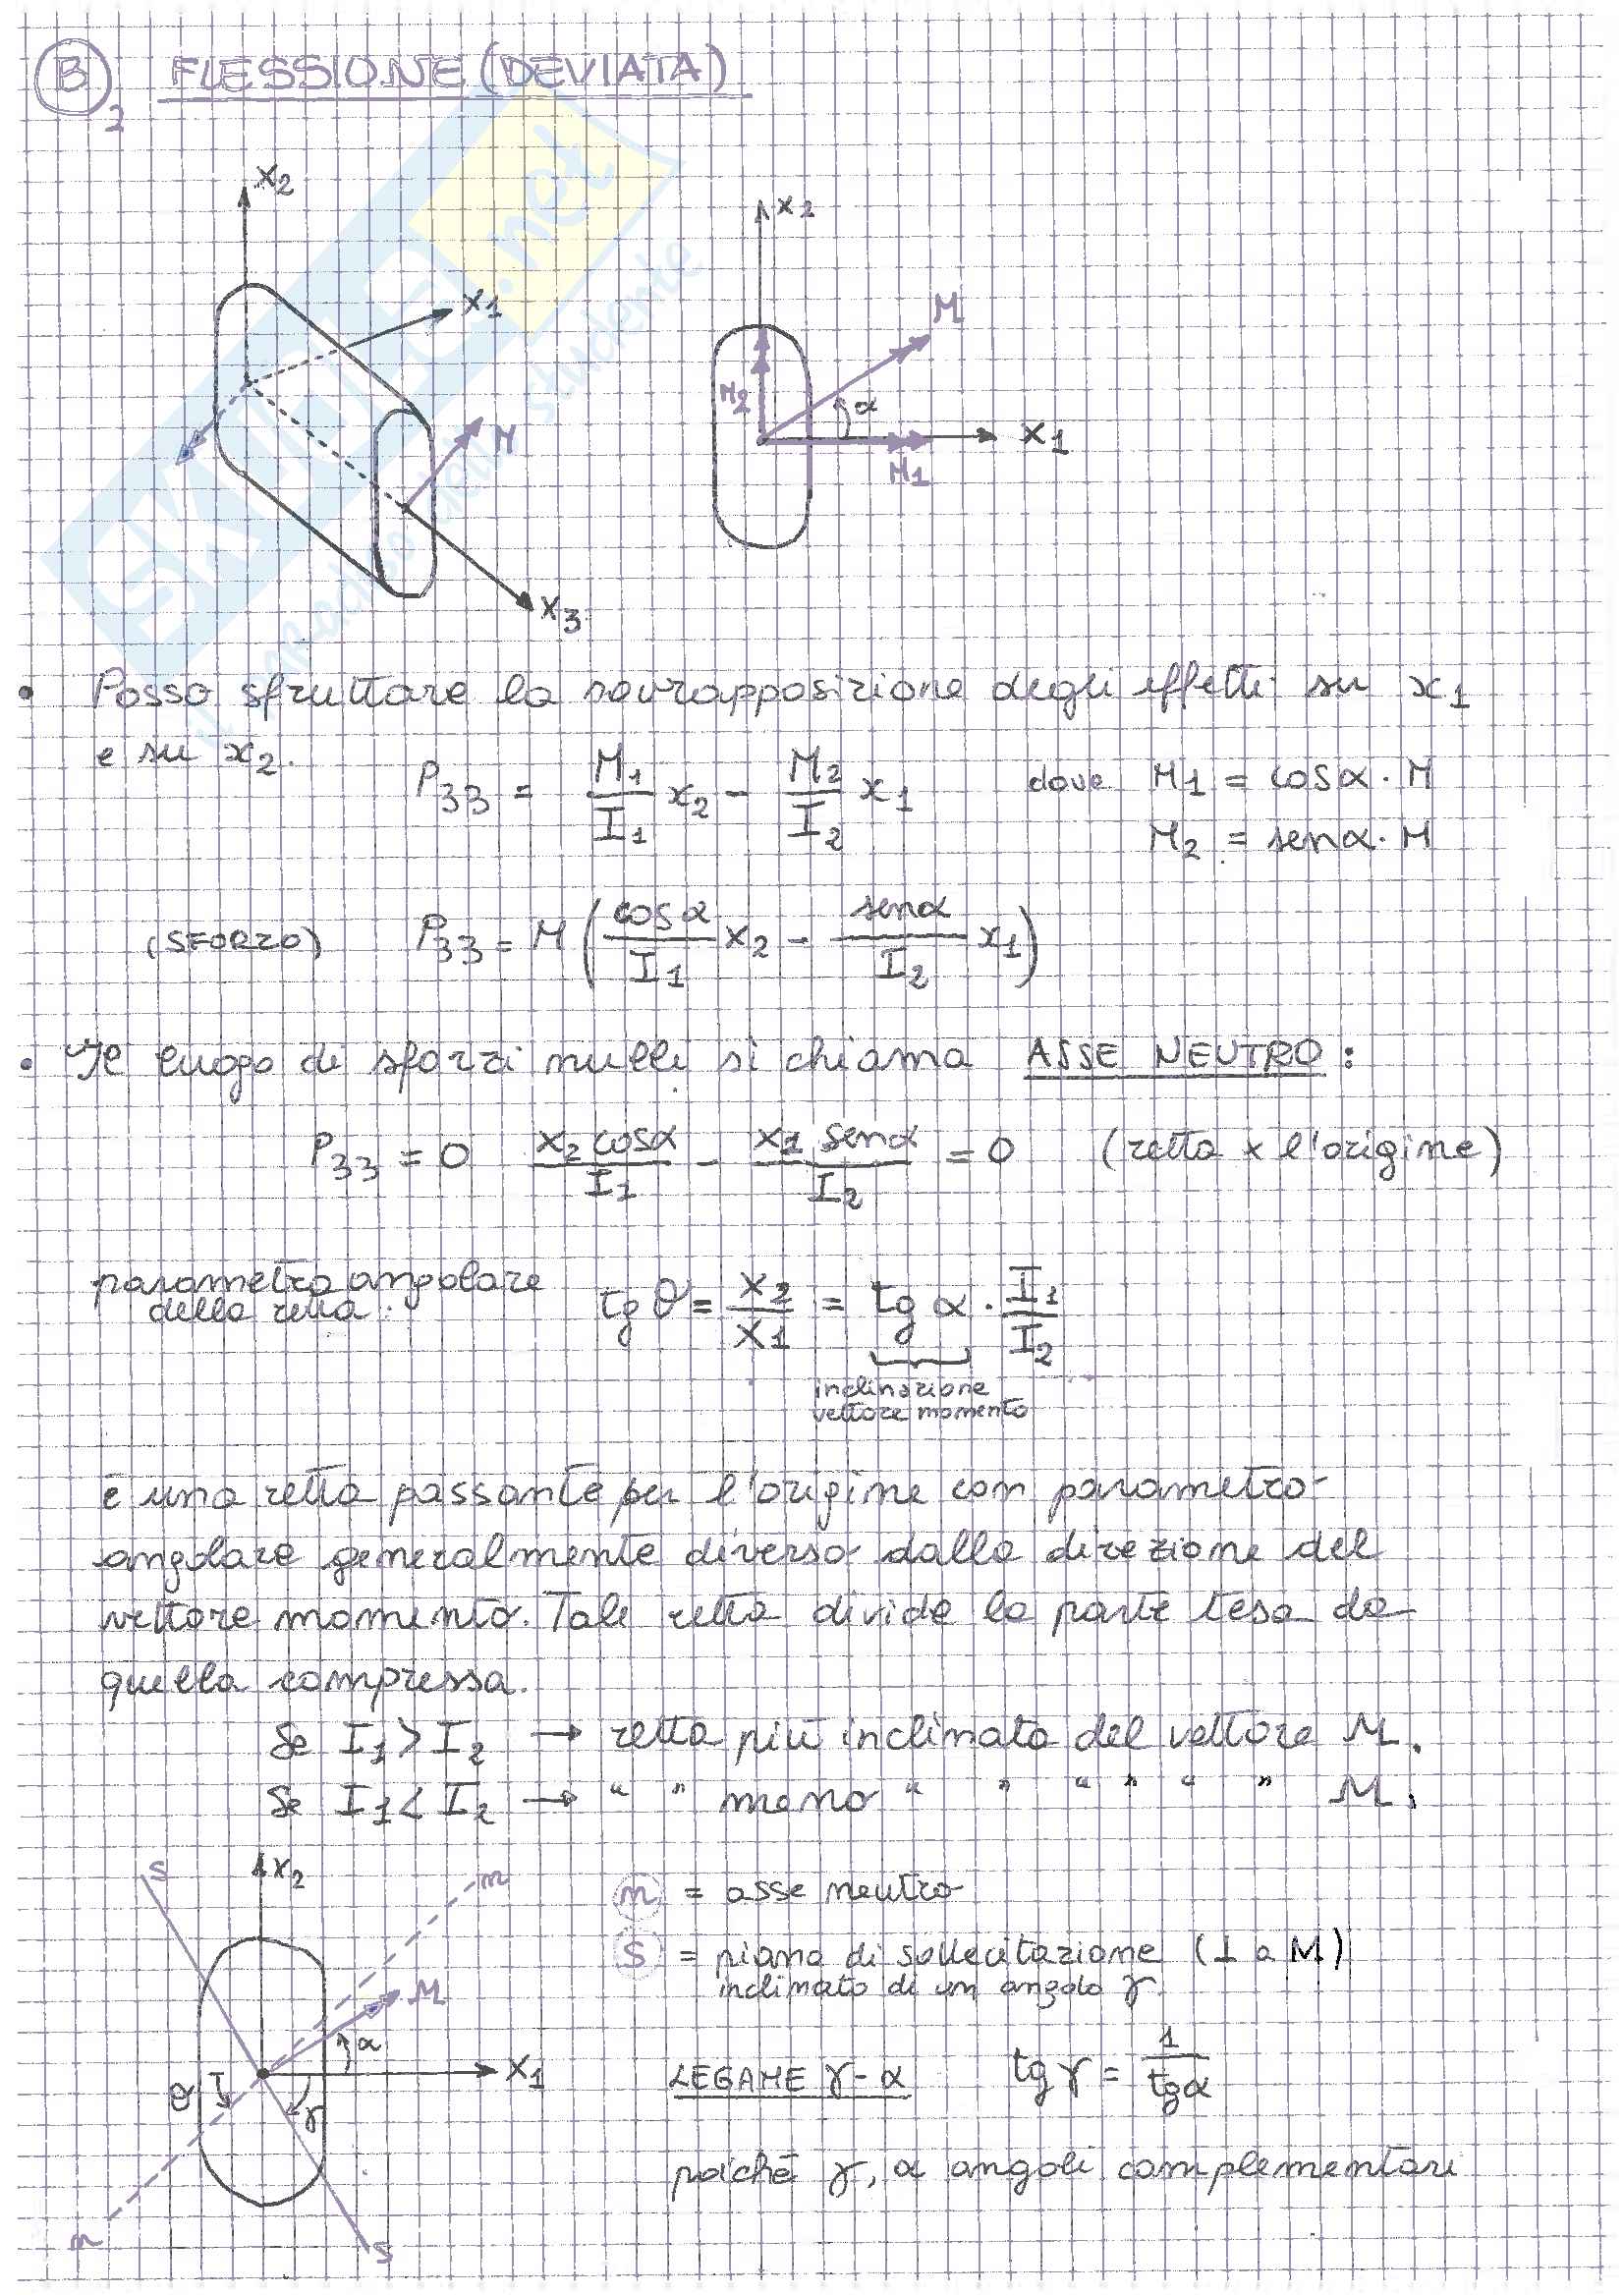 B2 FLESSIONE (DEVIATA)
x2
x1
M
x3
x2
M
M2
α
x1
M1
SKUOLA.net
• Posso sfruttare la sovrapposizione degli effetti su x1
e su x2.
P33 = M1/I1 x2 - M2/I2 x1 dove M1 = cosα · M
M2 = senα · M
(SFORZO) P33 = M (cosα/I1 x2 - senα/I2 x1)
• Il luogo di sforzi nulli si chiama ASSE NEUTRO :
P33 = 0 x2 cosα/I1 - x1 senα/I2 = 0 (retta x l'origine)
parametro angolare
della retta :
tg θ = x2/x1 = tg α · I1/I2
inclinazione
vettore momento
è una retta passante per l'origine con parametro
angolare generalmente diverso dalla direzione del
vettore momento. Tale retta divide la parte tesa da
quella compressa.
Se I1 > I2 → retta più inclinata del vettore M.
Se I1 < I2 → " " meno " " " " " " M.
s
x2
n
M
α
x1
θ
γ
n
s
n = asse neutro
s = piano di sollecitazione (⊥ a M)
inclinato di un angolo γ
LEGAME γ - α tg γ = 1/tgα
poiché γ, α angoli complementari